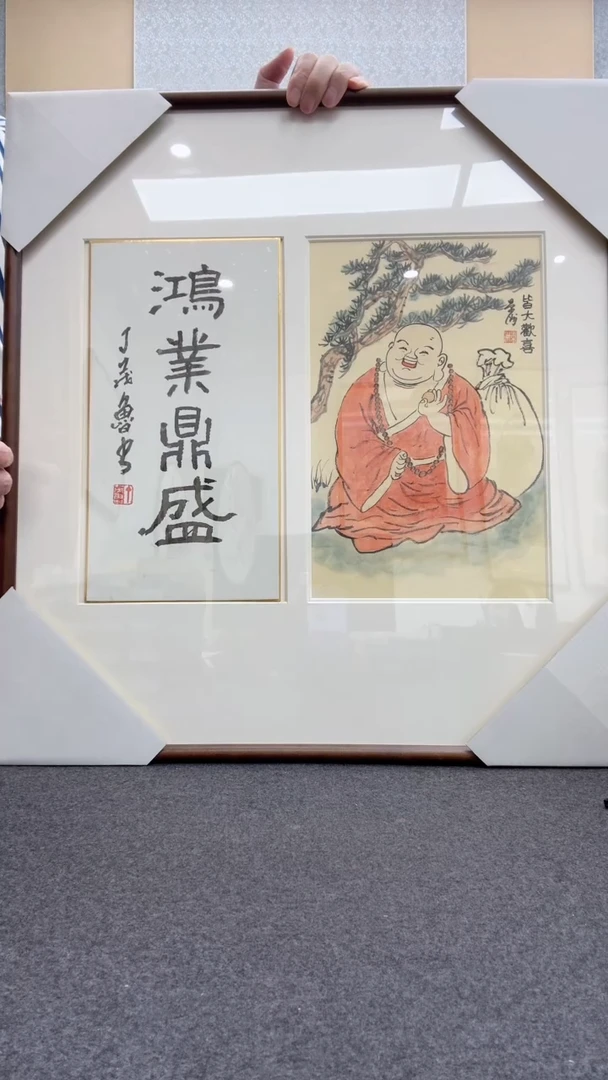 鴻業鼎盛
丁茂魯书
皆大歡喜